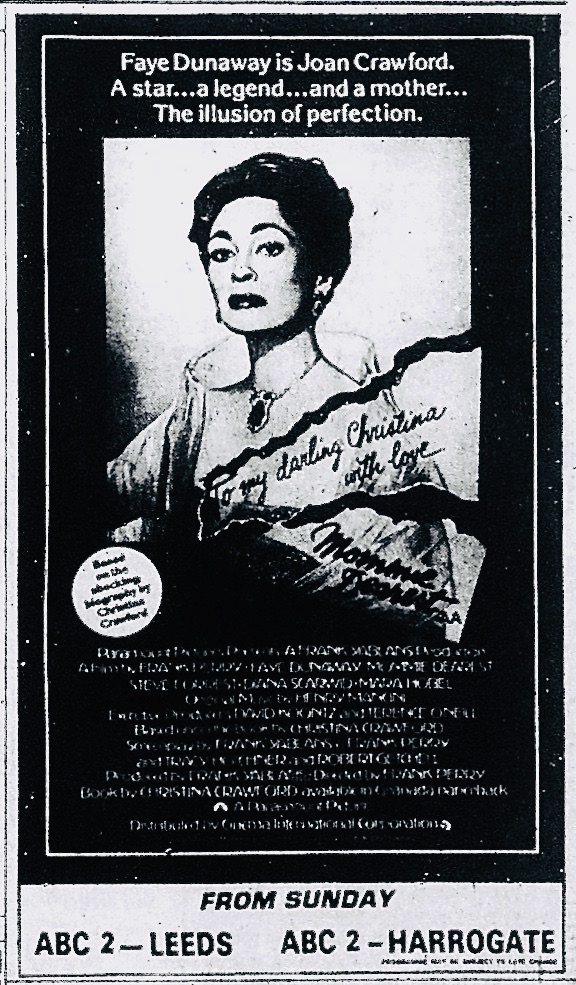 Faye Dunaway is Joan Crawford.
A star...a legend...and a mother...
The illusion of perfection.
To my darling Christina
with love
Mommie
Dearest
AA
Based
on the
shocking
biography by
Christina
Crawford
Paramount Pictures Presents A FRANK YABLANS Production
A Film by FRANK PERRY · FAYE DUNAWAY · MOMMIE DEAREST
STEVE FORREST · DIANA SCARWID · MARA HOBEL
Original Music by HENRY MANCINI
Executive Producers DAVID KOONTZ and TERENCE O'NEILL
Based on the book by CHRISTINA CRAWFORD
Screenplay by FRANK YABLANS & FRANK PERRY
and TRACY HOTCHNER and ROBERT GETCHELL
Produced by FRANK YABLANS · Directed by FRANK PERRY
Book by CHRISTINA CRAWFORD available in Granada paperback
A Paramount Picture
Distributed by Cinema International Corporation
FROM SUNDAY
ABC 2 — LEEDS ABC 2 – HARROGATE
PROGRAMME MAY BE SUBJECT TO LATE CHANGE